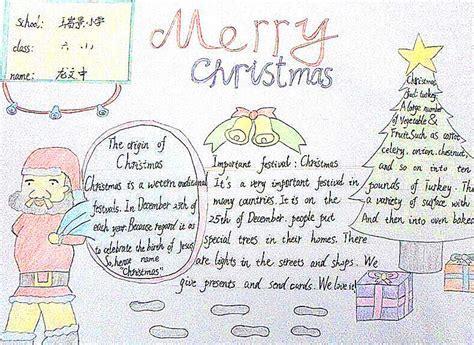 school: 玉岩景小学
class: 六 小
name: 龙文中
Merry
Christmas
The origin of
Christmas
Christmas is a western traditional
festivals. In December 25th of
each year. Because regard it as
to celebrate the birth of Jesus
So, hence name
"Christmas"
Important festival: Christmas
It's a very important festival in
many countries. It is on the
25th of December. people put
special trees in their homes. There
are lights in the streets and shops. We
give presents and send cards. We love it
Christmas
just turkey.
A large number
of vegetable &
Fruit. Such as carrot
celery, onion, chestnut,
and so on into ten
pounds of turkey. The
a variety of surface with
And then into oven baked